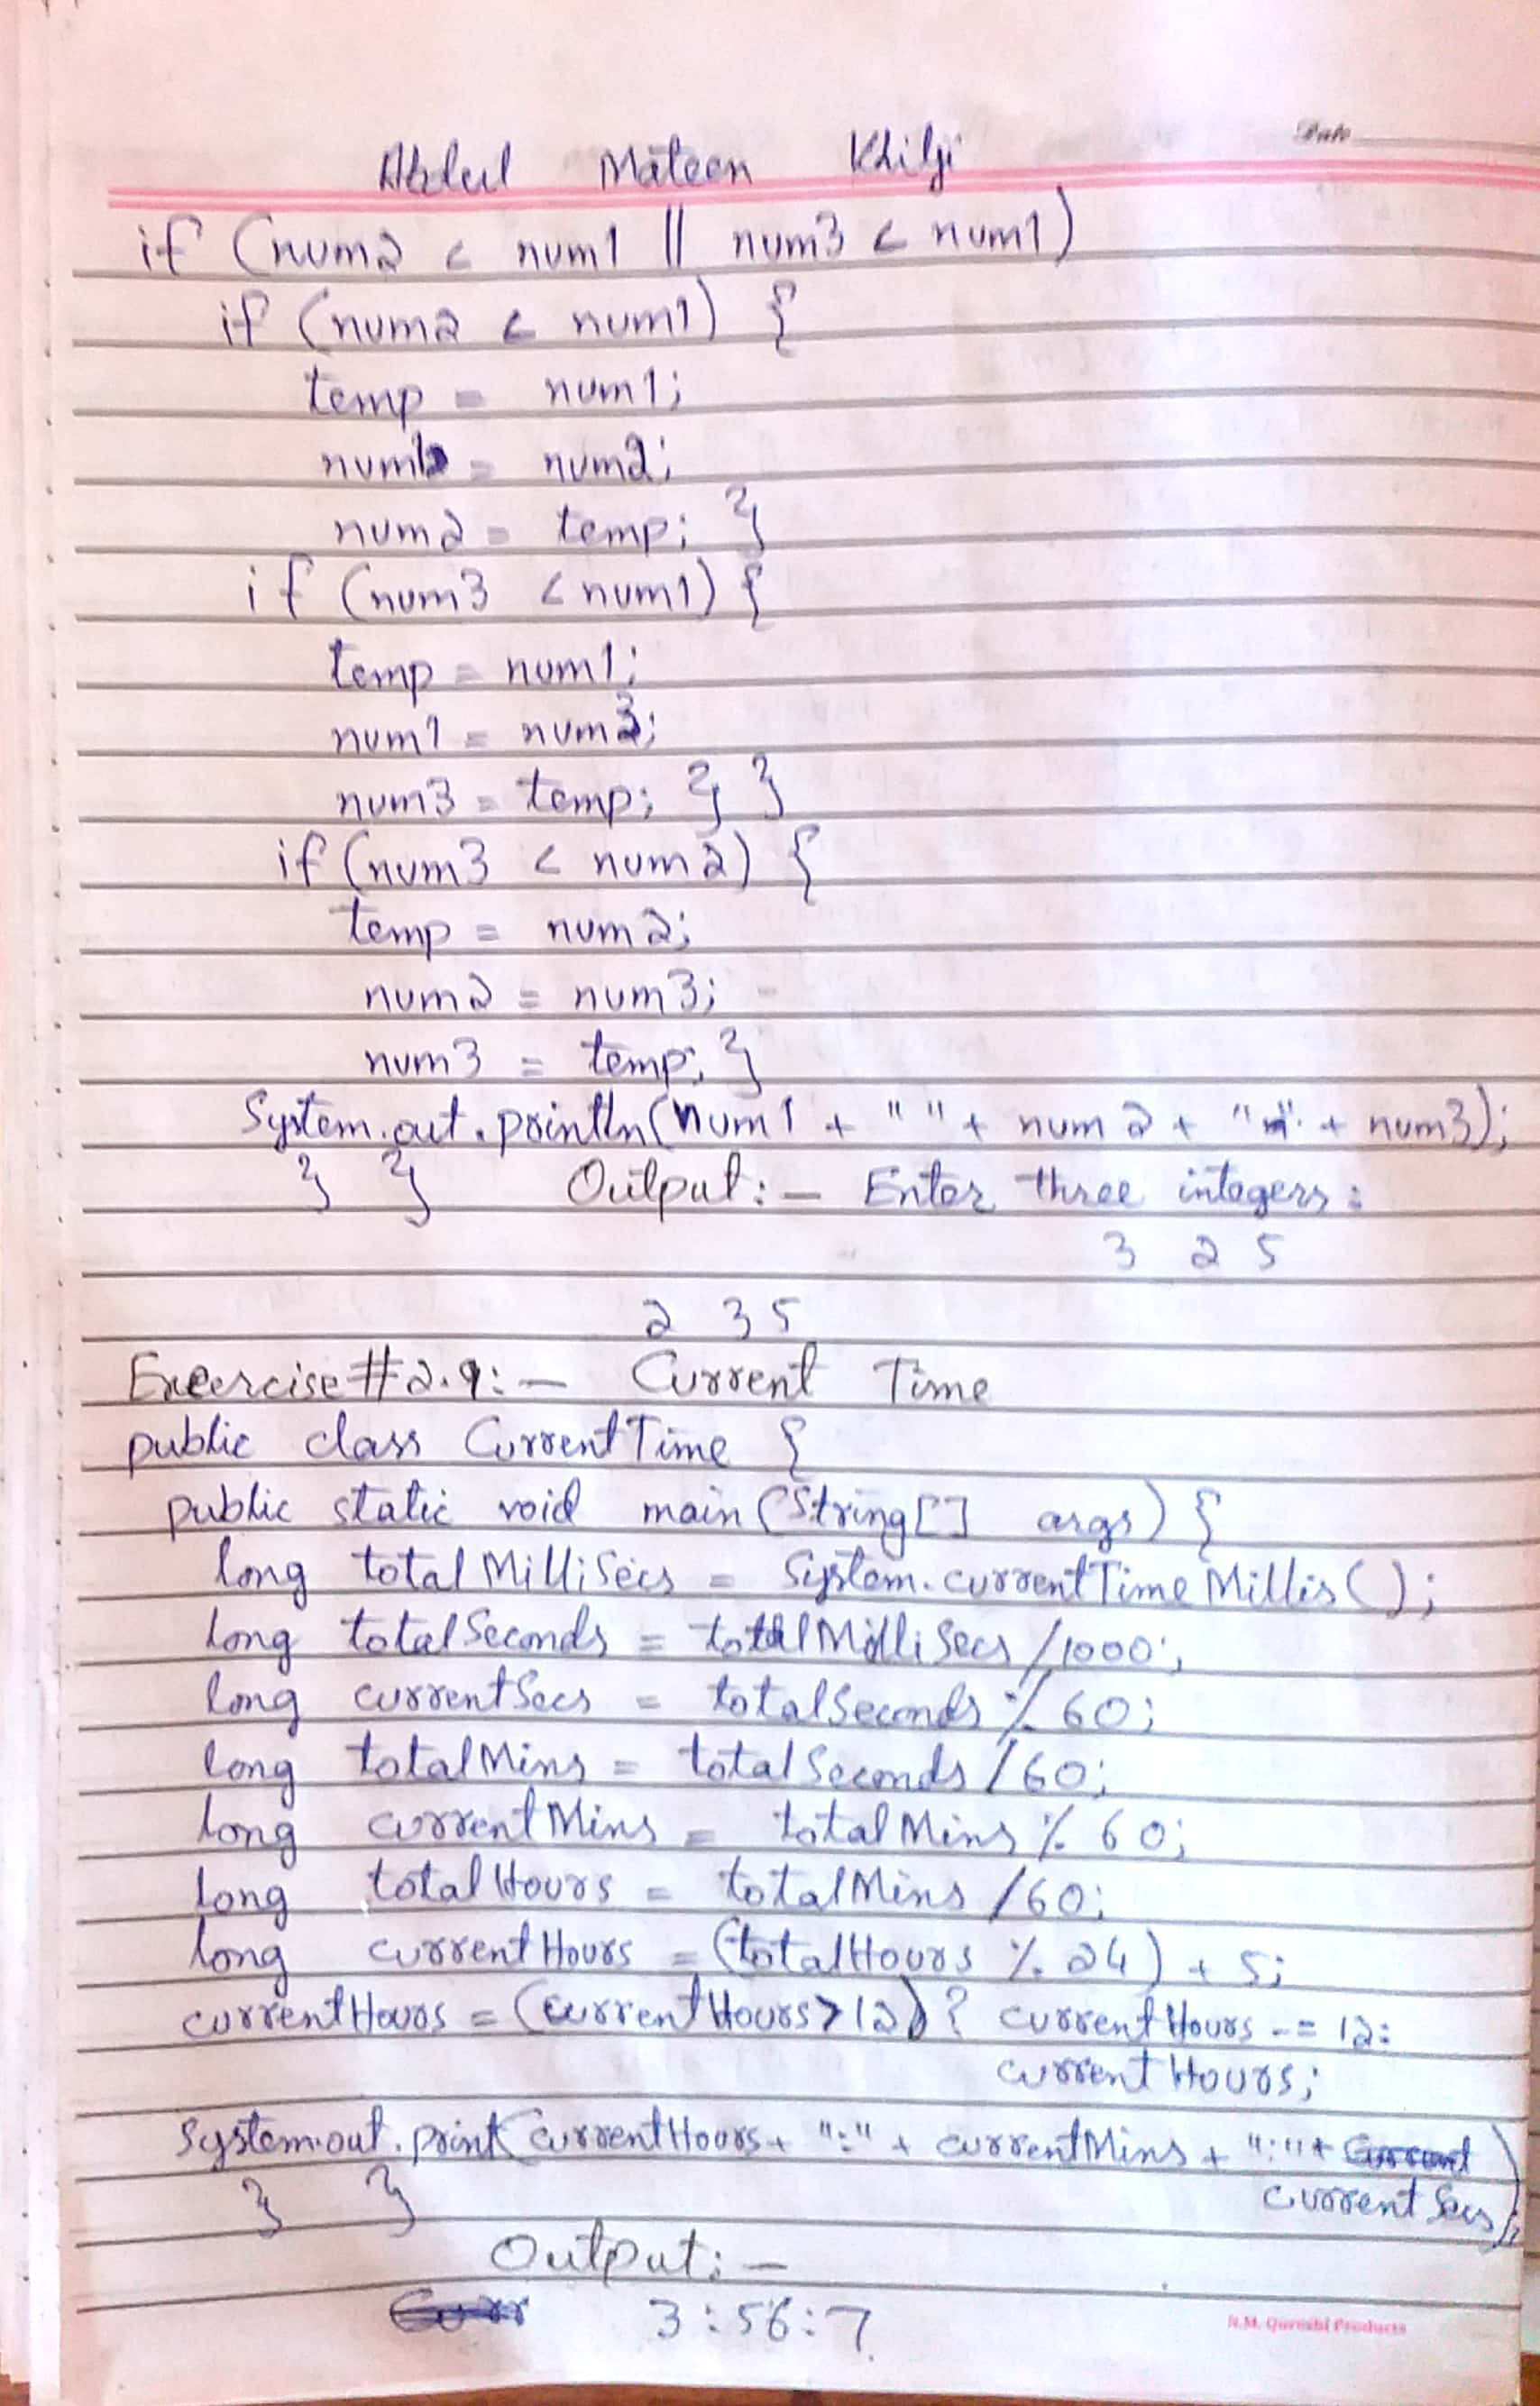 Date
Abdul Mateen Khilji
if (num2 < num1 || num3 < num1)
if (num2 < num1) {
temp = num1;
num1 = num2;
num2 = temp; }
if (num3 < num1) {
temp = num1;
num1 = num3;
num3 = temp; } }
if (num3 < num2) {
temp = num2;
num2 = num3;
num3 = temp; }
System.out.println(num1 + " " + num2 + " " + num3);
} } Output:- Enter three integers:
3 2 5
2 3 5
Exeercise#2.9:- Current Time
public class CurrentTime {
public static void main (String[] args) {
long totalMilliSecs = System.currentTimeMillis();
long totalSeconds = totalMilliSecs /1000;
long currentSecs = totalSeconds % 60;
long totalMins = totalSeconds /60;
long currentMins = totalMins % 60;
long totalHours = totalMins /60;
long currentHours = (totalHours % 24) + 5;
currentHours = (currentHours>12)? currentHours -= 12:
currentHours;
System.out.print(currentHours+ ":" + currentMins + ":"+
currentSecs);
} }
Output:-
3:56:7
R.M. Qureshi Products